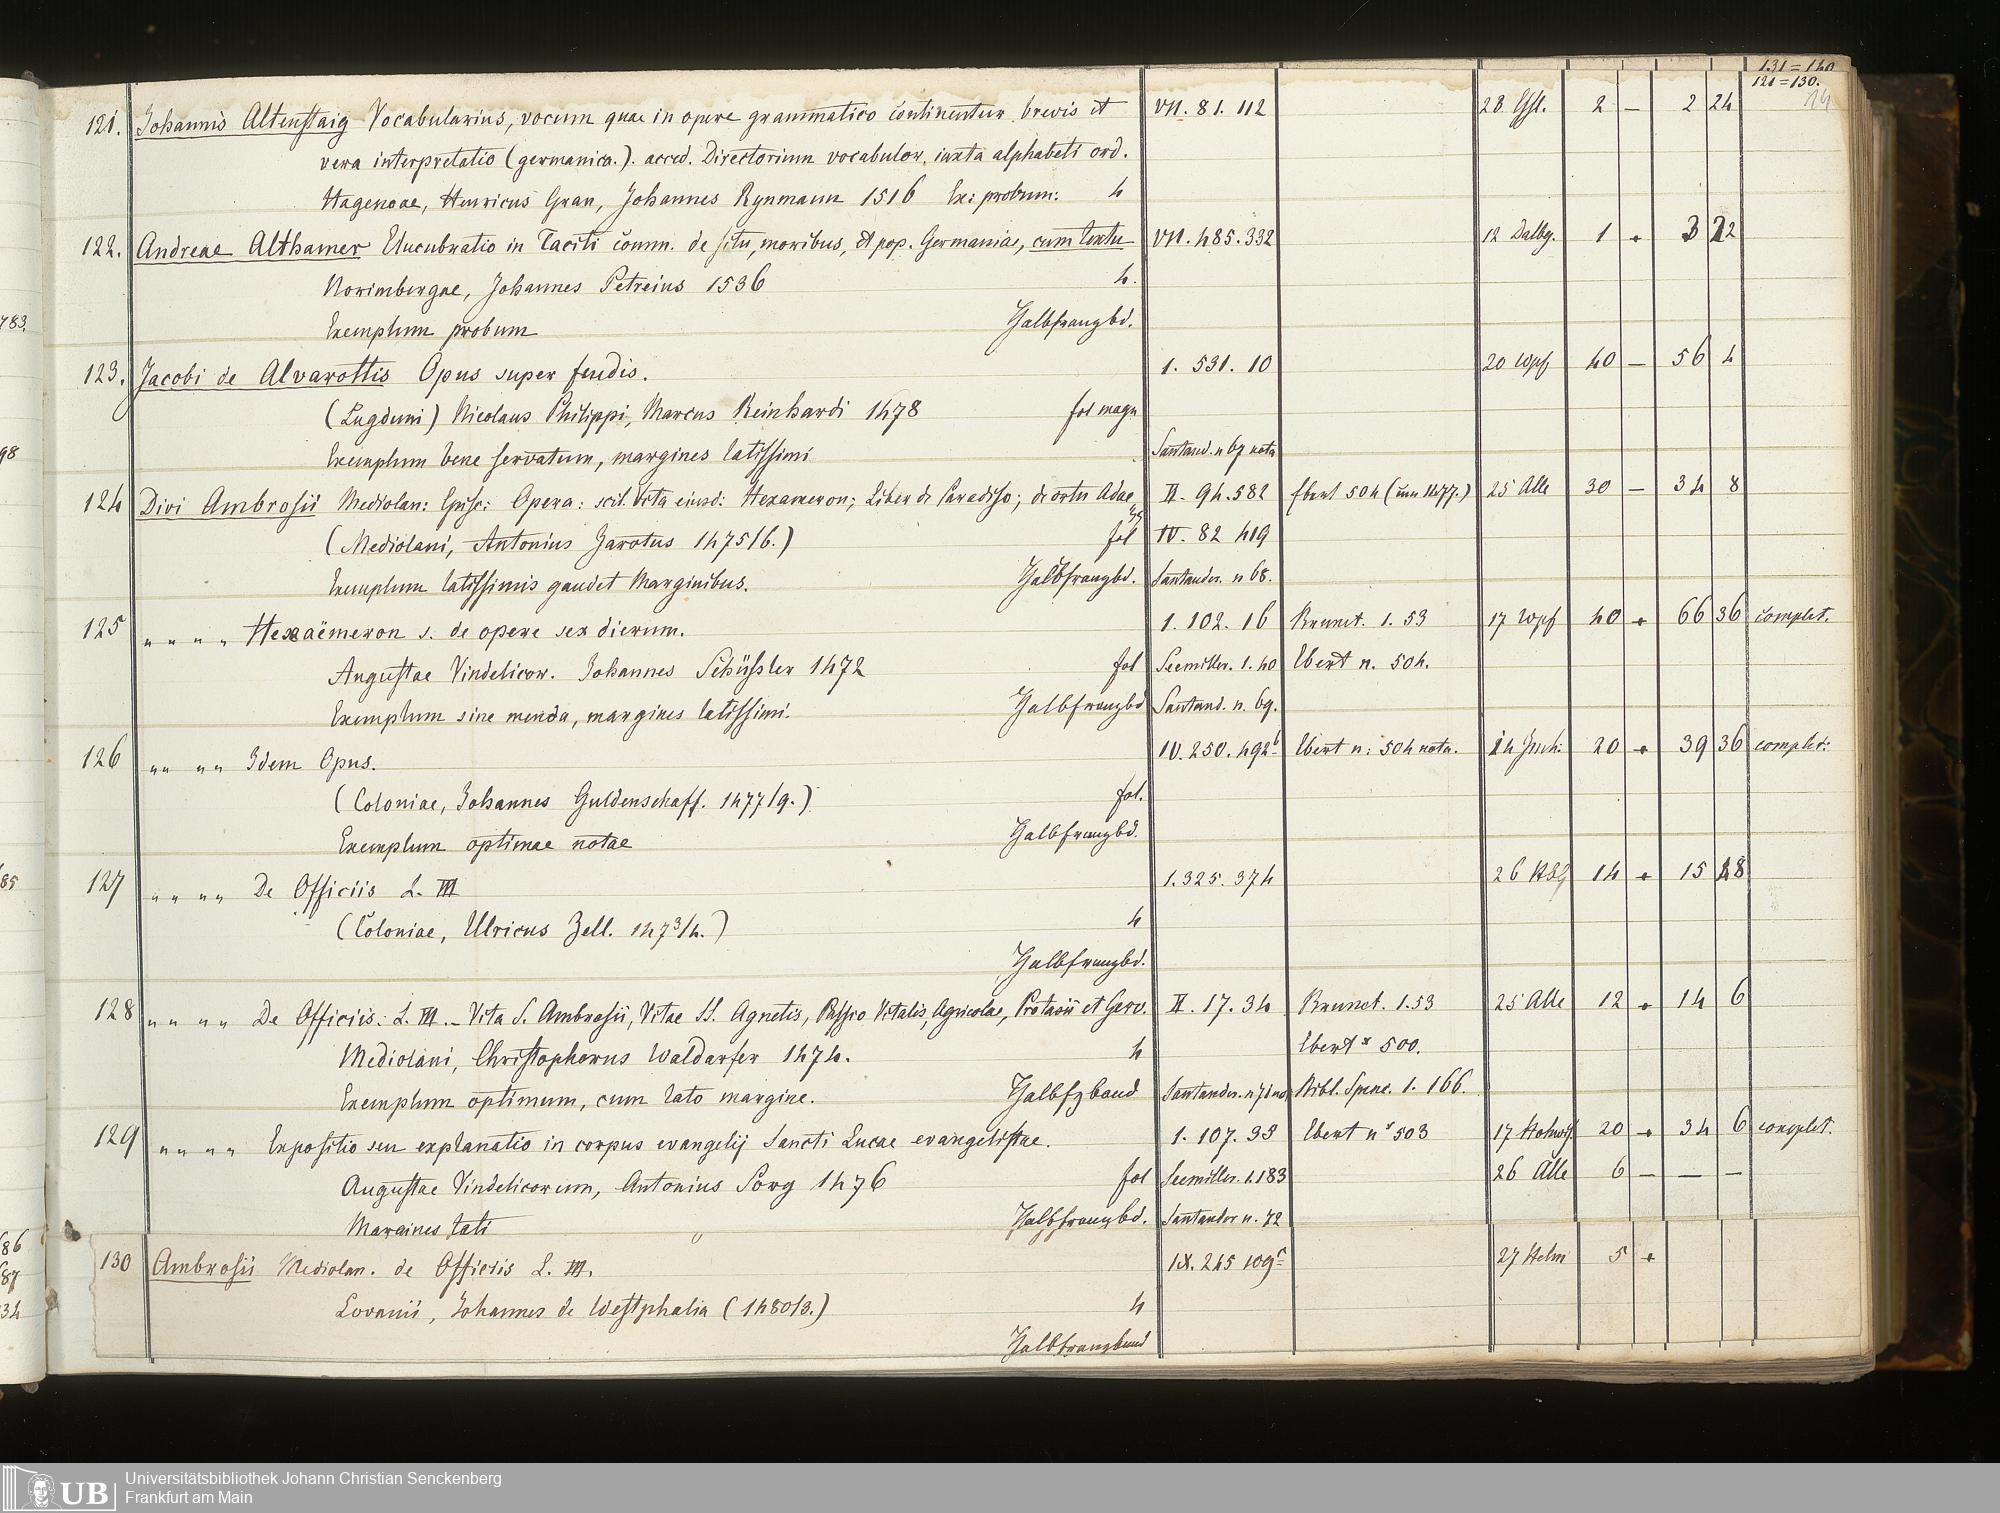 131=140
121=130.
14
121. Johannis Altenstaig Vocabularius, vocum quae in opere grammatico continentur, brevis et VII. 81. 112 28 2 — 2 24
vera interpretatio (germanica.). acced. Directorium vocabulor. iuxta alphabeti ord.
Hagenoae, Henricus Gran, Johannes Rynmann 1516 Ex: probum: 4
122. Andreae Althamer Elucubratio in Taciti comm. de situ, moribus, et pop. Germaniae, cum textu VII. 485. 332 12 Dalbg. 1 • 3 12
Norimbergae, Johannes Petreius 1536 4.
783.
Exemplum probum Halbfranzbd.
123. Jacobi de Alvarottis Opus super feudis. 1. 531. 10 20 Wpf 40 — 56 4
(Lugduni) Nicolaus Philippi, Marcus Reinhardi 1478 fol magn
98
Exemplum bene servatum, margines latissimi Santand. n 67 nota
124 Divi Ambrosii Mediolan: Episc: Opera: scil. Vita eiusd: Hexameron; Liber de Paradiso; de ortu Adae II. 94. 582 Ebert 504 (1477.) 25 Alle 30 — 34 8
(Mediolani, Antonius Zarotus 1475/6.) fol IV. 82 419
Exemplum latissimis gaudet Marginibus. Halbfranzbd. Santander. n 68.
125 „ „ „ „ Hexaëmeron s. de opere sex dierum. 1. 102. 16 Brunet. 1. 53 17 Wpf 40 • 66 36 complet.
Augustae Vindelicor. Johannes Schüssler 1472 fol Seemiller. 1. 40 Ebert n. 504.
Exemplum sine menda, margines latissimi. Halbfranzbd Santand. n. 69.
126 „„ „„ Idem Opus. IV. 250. 492b Ebert n: 504 nota. 14 20 • 39 36 complet:
(Coloniae, Johannes Guldenschaff. 1477/9.) fol.
Exemplum optimae notae Halbfranzbd.
85
127 „ „ „ „ De Officiis L. III 1. 325. 374 26 14 • 15 18
(Coloniae, Ulricus Zell. 1473/4.) 4
Halbfranzbd.
128 „ „ „ „ De Officiis: L. III. – Vita S. Ambrosii, Vitae SS. Agnetis, Passio Vitalis, Agricolae, Protasii et Gerv. II. 17. 34 Brunet. 1. 53 25 Alle 12 • 14 6
Mediolani, Christophorus Waldarfer 1474. 4 Ebert n 500.
Exemplum optimum, cum lato margine. Halbfzband Santander. n 71 Bibl. Spenc. 1. 166.
129 „ „ „ „ Expositio seu explanatio in corpus evangelij Sancti Lucae evangelistae. 1. 107. 33 Ebert no 503 17 20 • 34 6 complet.
Augustae Vindelicorum, Antonius Sorg 1476 fol Seemiller. 1. 183 26 Alle 6 — — —
Margines lati Halbfranzbd. Santander n. 72
86
87
34
130 Ambrosii Mediolan. de Officiis L. III. IX. 245 109c 27 Helm 5 •
Lovanii, Johannes de Westphalia (1480/3.) 4
Halbfranzband
UB Universitätsbibliothek Johann Christian Senckenberg
Frankfurt am Main